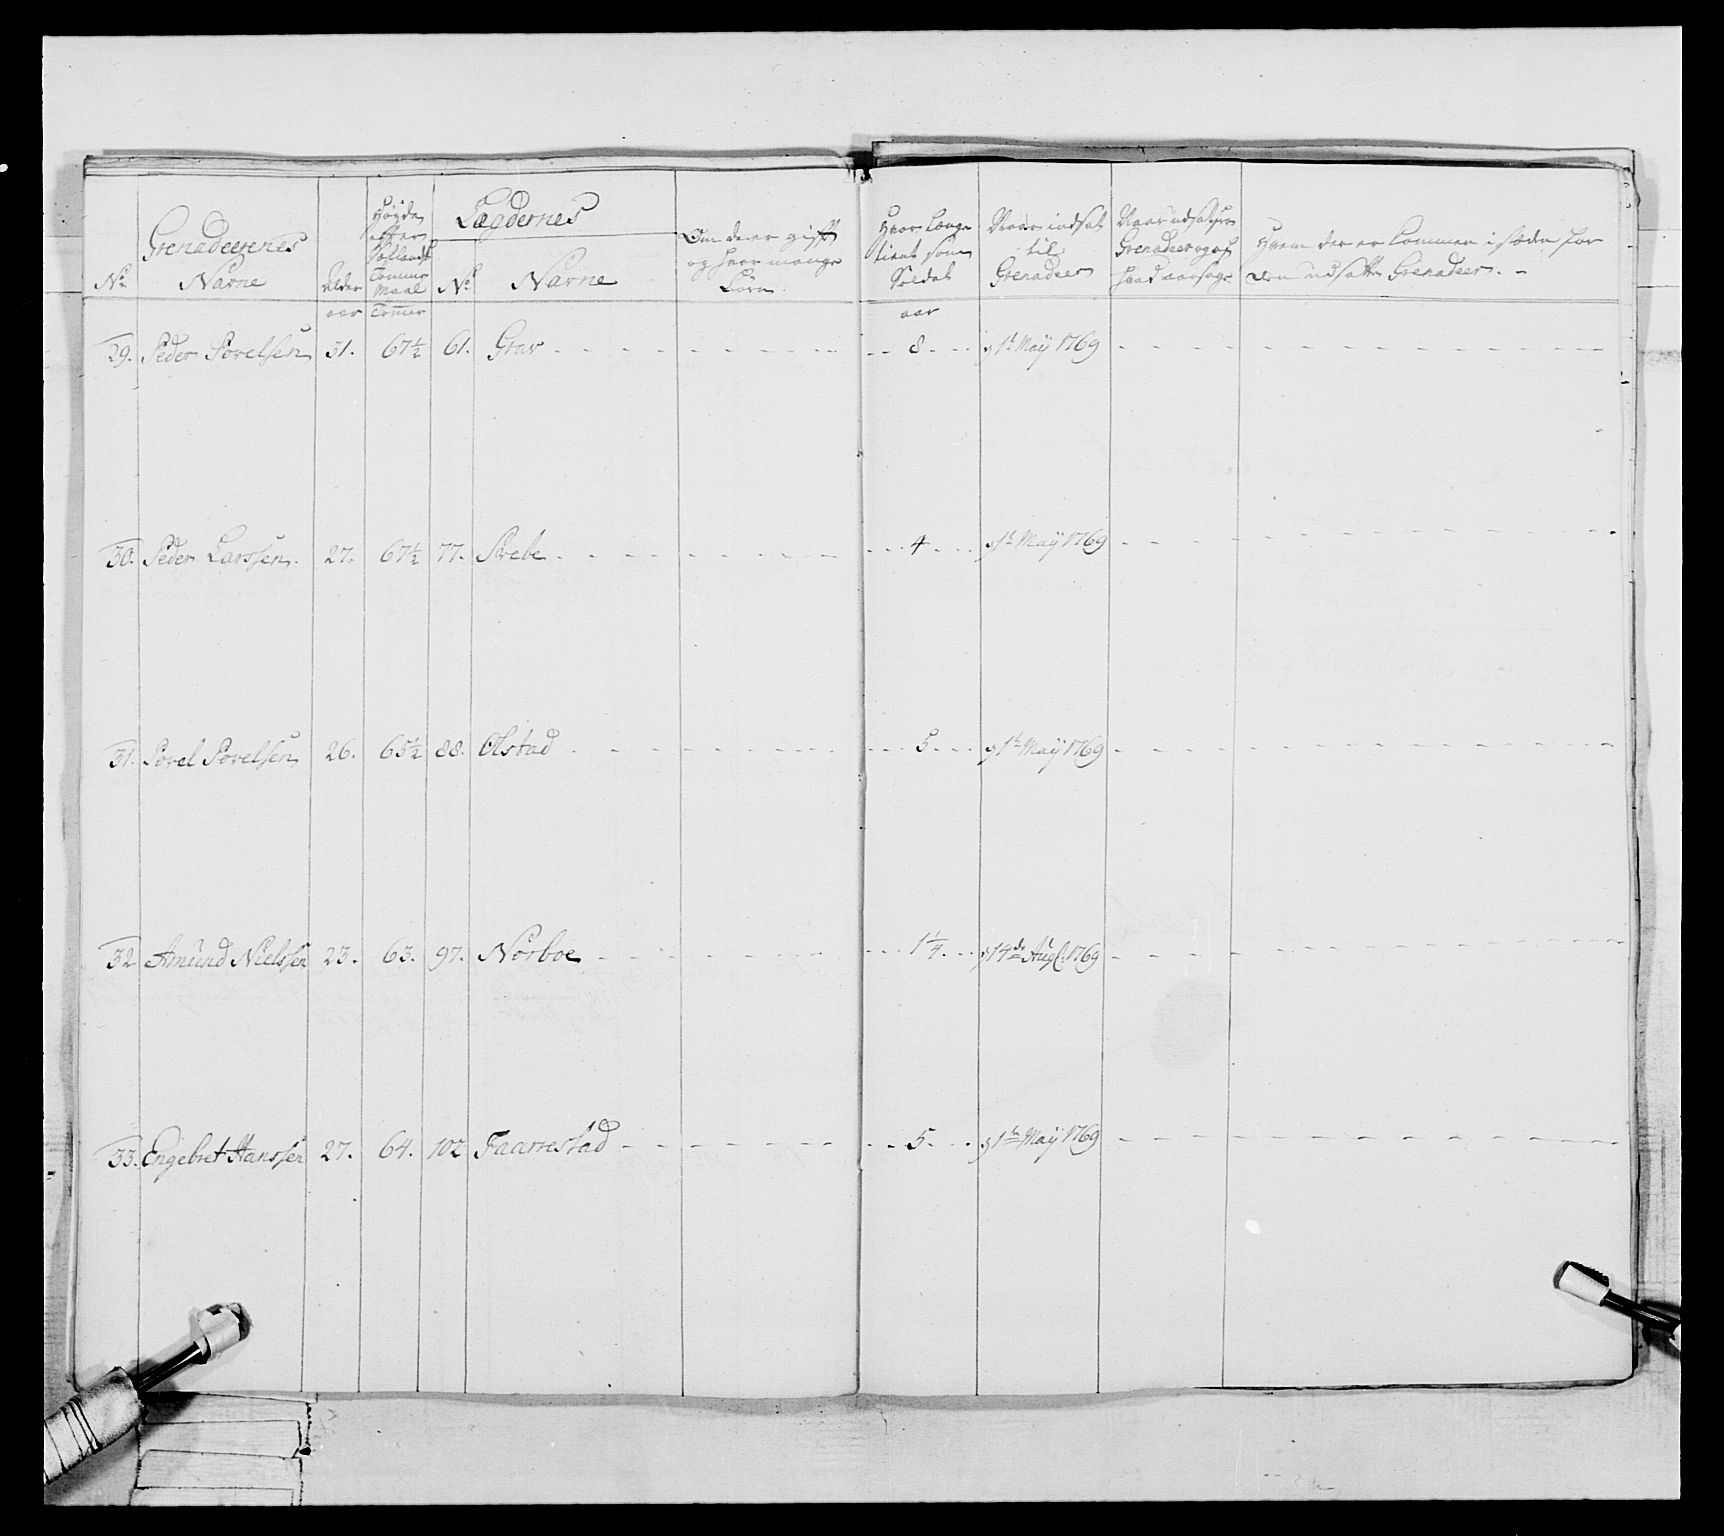 No
Grenadeerenes
Navne
Alder
aar
Høyde
efter
Siællandsk
Tomme
Maal
Tommer
Lægdernes
No
Navne
Om de er gift
og hvor mange
Børn
Hvor længe
tient som
Soldat
aar
Naar indsat
til
Grenadeer
Naar udsat fra
Grenadeer og af
hvad aarsage
Hvem der er kommen i stæden for
den udsatte Grenadeer.
29. Peder Povelsen 31. 67½ 61. Grav 8 d 1te Maÿ 1769
30. Peder Larssen 27. 67½ 77. 4 d 1te Maÿ 1769
31. Povel Povelsen 26. 65½ 88. Olstad 5 d 1te Maÿ 1769
32 Amund Nielssen 23. 63. 97. Norboe 1¼ d 14de Aug. 1769
33. Engebret Hanssen 27. 64. 102 Faarrestad 5 d 1te Maÿ 1769